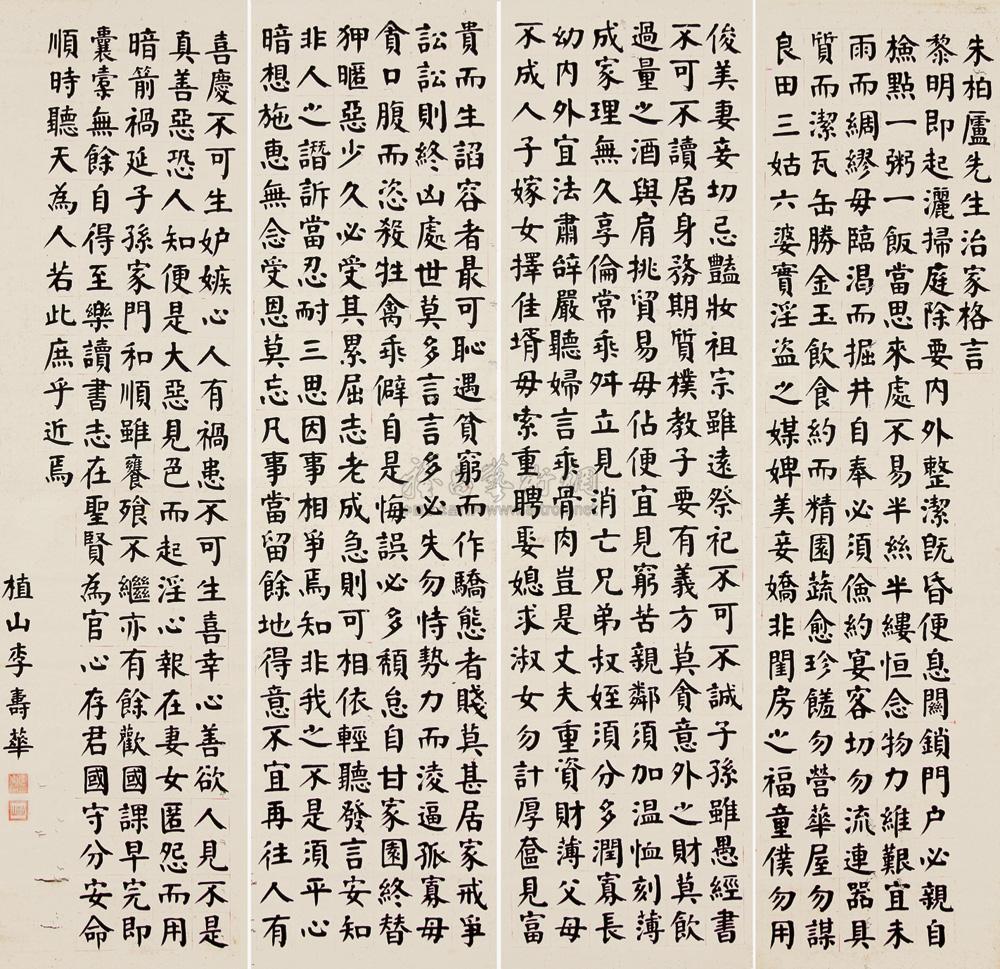 朱柏廬先生治家格言
黎明即起灑掃庭除要内外整潔既昏便息關鎖門户必親自
檢點一粥一飯當思來處不易半絲半縷恒念物力維艱宜未
雨而綢繆毋臨渴而掘井自奉必須儉約宴客切勿流連器具
質而潔瓦缶勝金玉飲食約而精園蔬愈珍饈勿營華屋勿謀
良田三姑六婆實淫盜之媒婢美妾嬌非閨房之福童僕勿用
俊美妻妾切忌豔妝祖宗雖遠祭祀不可不誠子孫雖愚經書
不可不讀居身務期質樸教子要有義方莫貪意外之財莫飲
過量之酒與肩挑貿易毋佔便宜見窮苦親鄰須加温恤刻薄
成家理無久享倫常乖舛立見消亡兄弟叔姪須分多潤寡長
幼内外宜法肅辭嚴聽婦言乖骨肉豈是丈夫重資財薄父母
不成人子嫁女擇佳壻毋索重聘娶媳求淑女勿計厚奩見富
貴而生諂容者最可恥遇貧窮而作驕態者賤莫甚居家戒爭
訟訟則終凶處世莫多言言多必失勿恃勢力而淩逼孤寡毋
貪口腹而恣殺牲禽乖僻自是悔誤必多頹怠自甘家園終替
狎暱惡少久必受其累屈志老成急則可相依輕聽發言安知
非人之譖訴當忍耐三思因事相爭焉知非我之不是須平心
暗想施惠無念受恩莫忘凡事當留餘地得意不宜再往人有
喜慶不可生妒嫉心人有禍患不可生喜幸心善欲人見不是
真善惡恐人知便是大惡見色而起淫心報在妻女匿怨而用
暗箭禍延子孫家門和順雖饔飧不繼亦有餘歡國課早完即
囊橐無餘自得至樂讀書志在聖賢為官心存君國守分安命
順時聽天為人若此庶乎近焉
植山李壽華